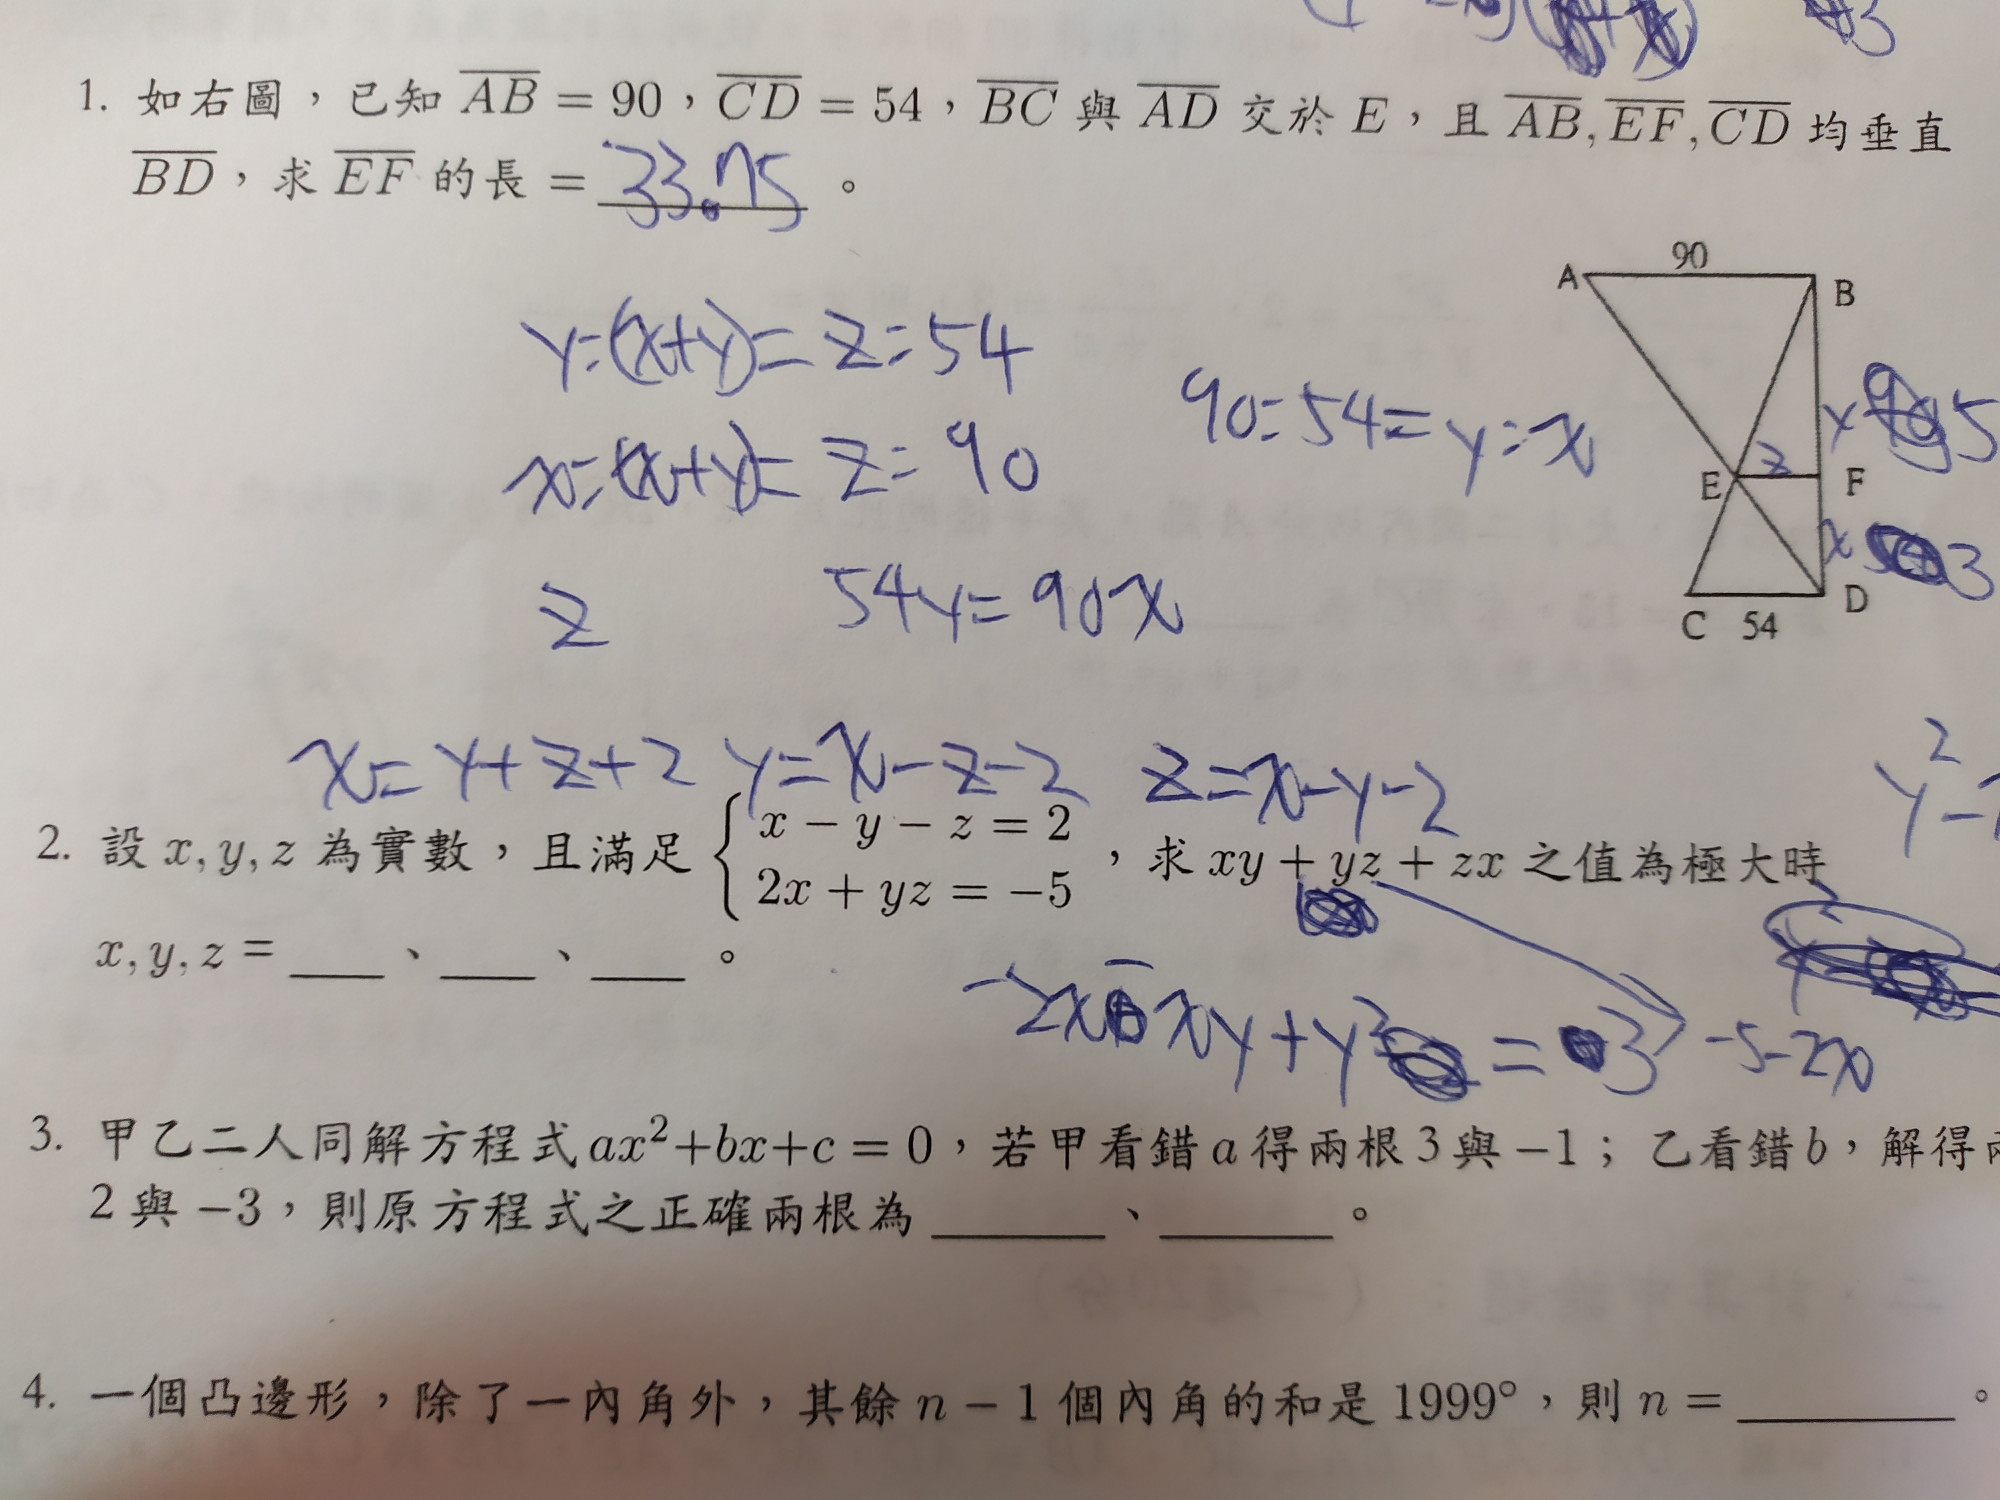 1. 如右圖，已知 AB = 90，CD = 54，BC 與 AD 交於 E，且 AB, EF, CD 均垂直
BD，求 EF 的長 = 33.75 。
90
A
B
y=(x+y)= z=54
90=54=y=x
y
5
x=(x+y)= z=90
z
E
F
x
3
z
54y=90x
C
54
D
x=y+z+2 y=x-z-2 z=x-y-2
2. 設 x, y, z 為實數，且滿足 { x − y − z = 2
2x + yz = −5 ，求 xy + yz + zx 之值為極大時
x, y, z = ____ 、 ____ 、 ____ 。
-5-2x
3. 甲乙二人同解方程式 ax²+bx+c = 0，若甲看錯 a 得兩根 3 與 −1；乙看錯 b，解得
2 與 −3，則原方程式之正確兩根為 ______ 、 ______ 。
4. 一個凸邊形，除了一內角外，其餘 n − 1 個內角的和是 1999°，則 n = ______ 。